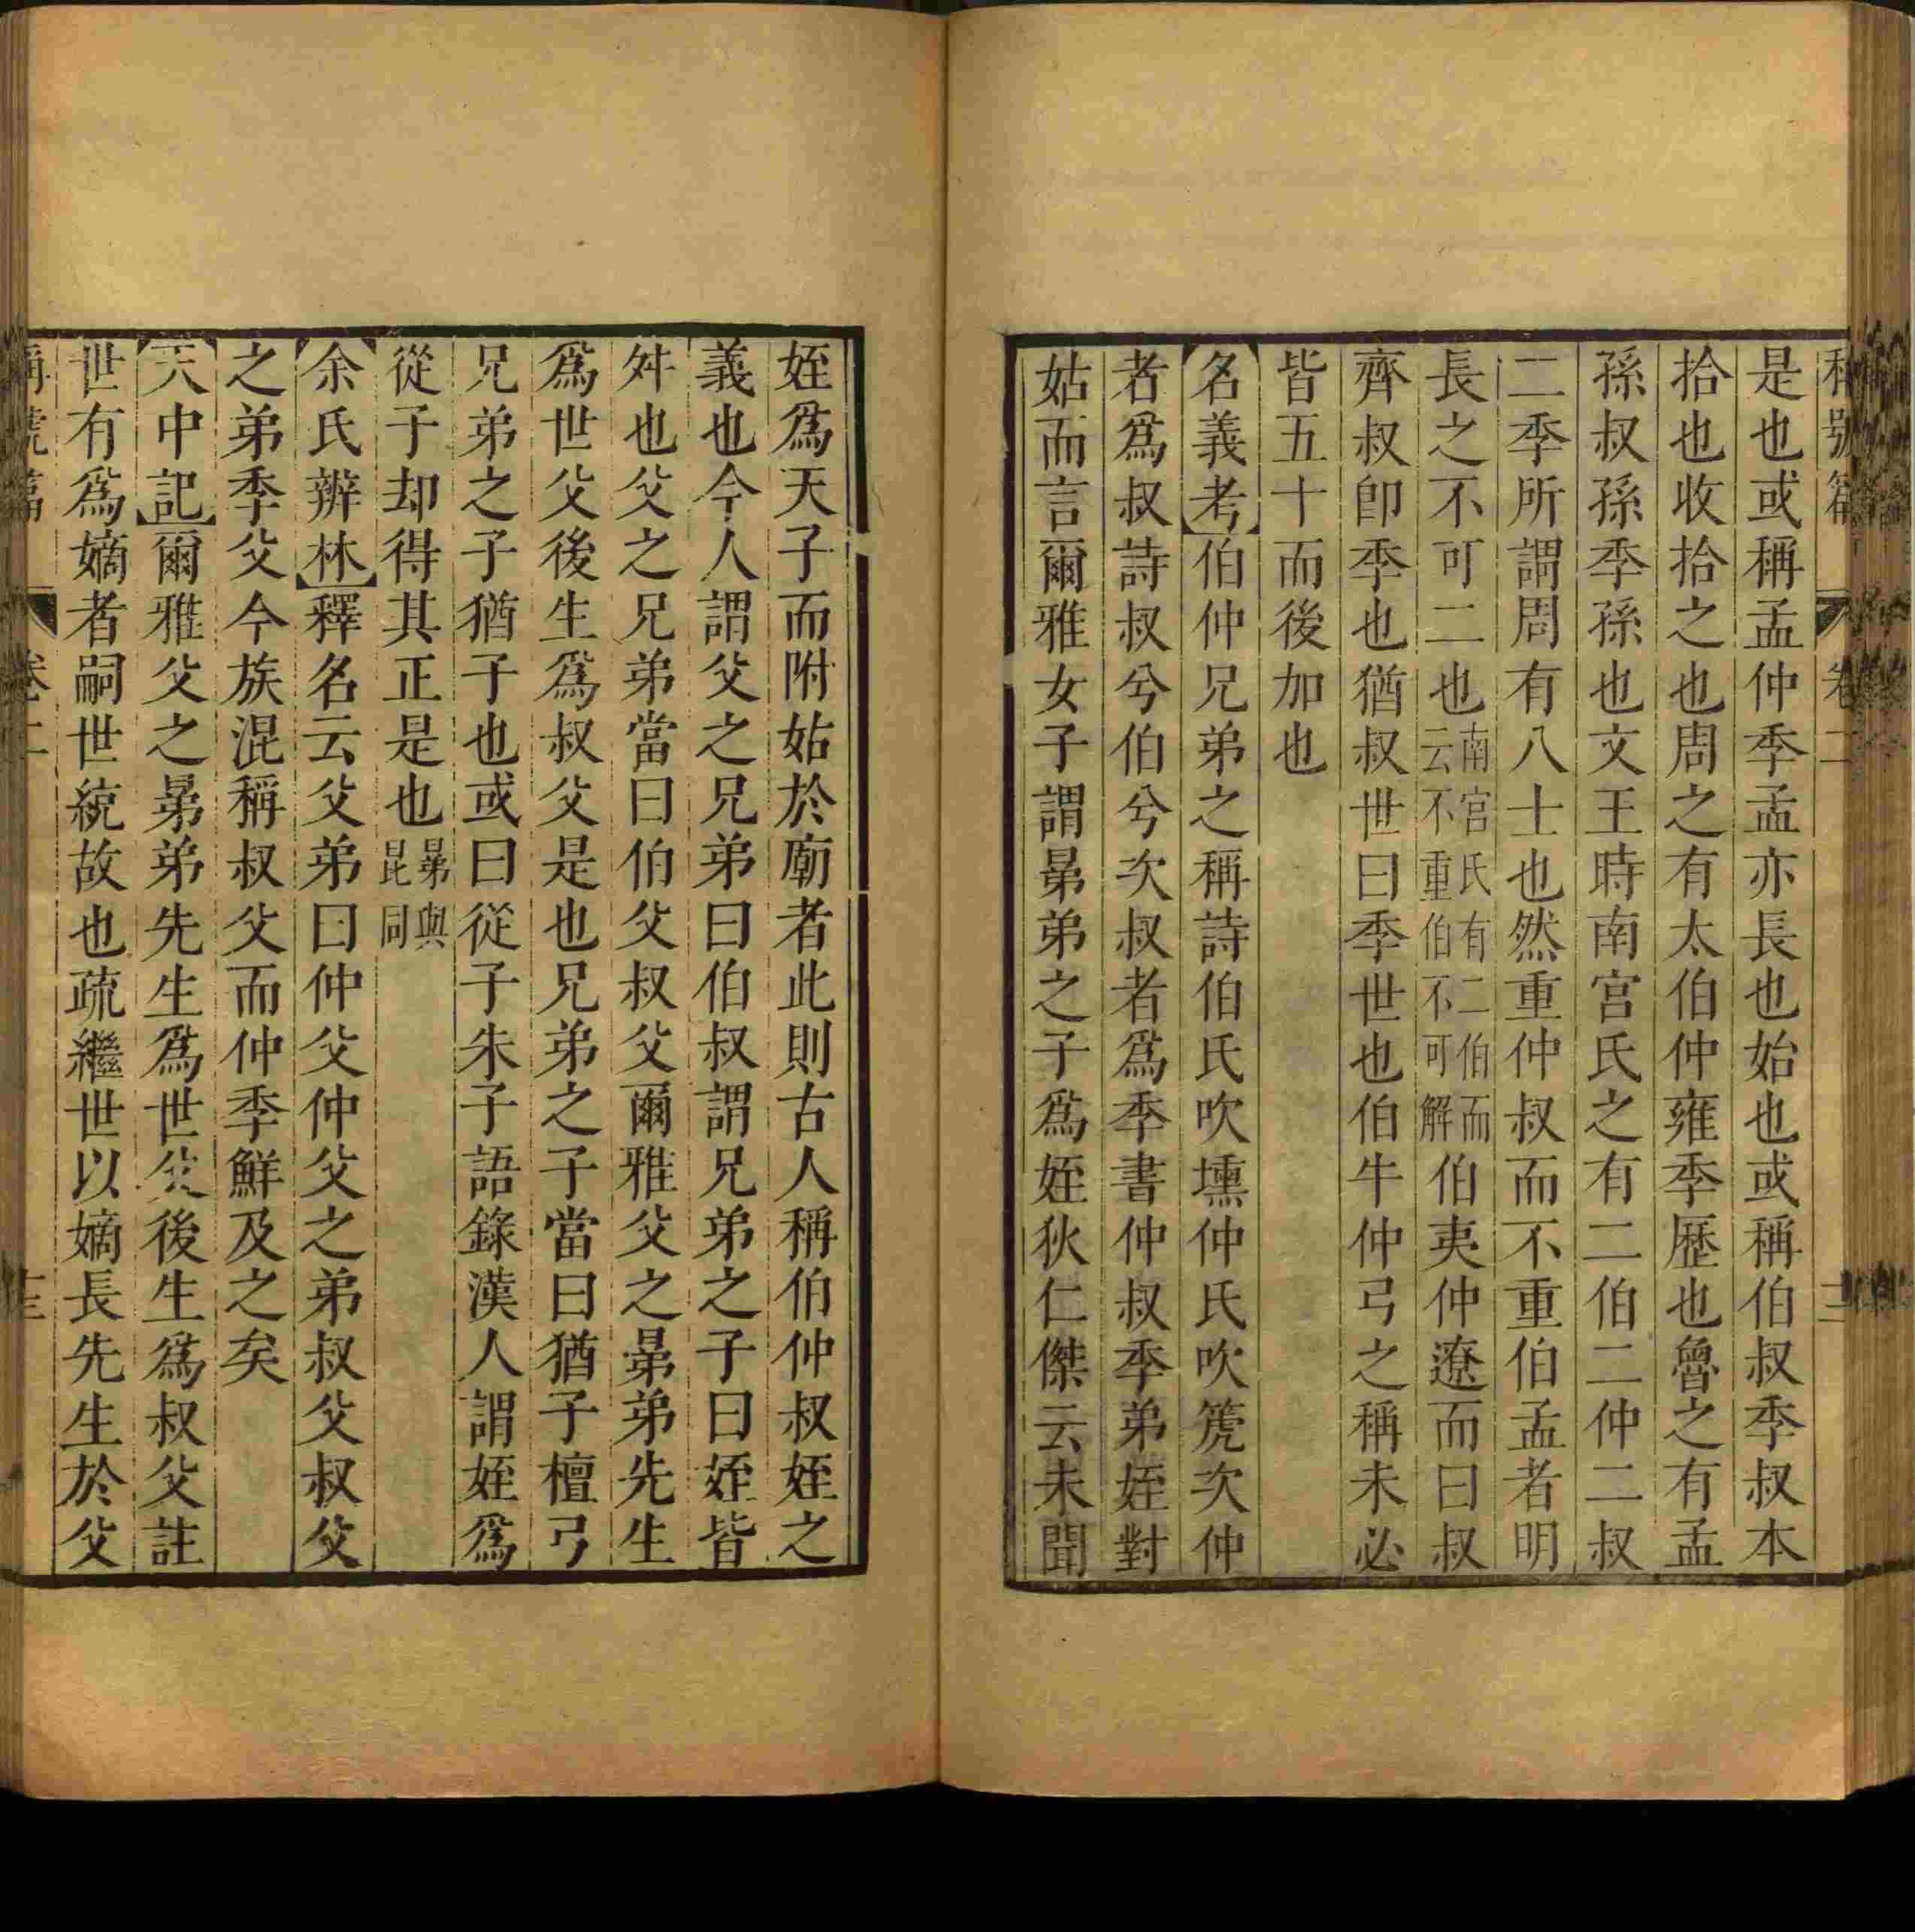 稱號篇 卷二
是也或稱孟仲季孟亦長也始也或稱伯叔季叔本
拾也收拾之也周之有太伯仲雍季歷也魯之有孟
孫叔孫季孫也文王時南宮氏之有二伯二仲二叔
二季所謂周有八士也然重仲叔而不重伯孟者明
長之不可二也南宮氏有二伯而云不重伯不可解伯夷仲遼而曰叔
齊叔卽季也猶叔世曰季世也伯牛仲弓之稱未必
皆五十而後加也
【名義考】伯仲兄弟之稱詩伯氏吹壎仲氏吹篪次仲
者爲叔詩叔兮伯兮次叔者爲季書仲叔季弟姪對
姑而言爾雅女子謂晜弟之子爲姪狄仁傑云未聞
姪爲天子而附姑於廟者此則古人稱伯仲叔姪之
義也今人謂父之兄弟曰伯叔謂兄弟之子曰姪皆
舛也父之兄弟當曰伯父叔父爾雅父之晜弟先生
爲世父後生爲叔父是也兄弟之子當曰猶子檀弓
兄弟之子猶子也或曰從子朱子語錄漢人謂姪爲
從子却得其正是也晜與昆同
【余氏辨林】釋名云父弟曰仲父仲父之弟叔父叔父
之弟季父今族混稱叔父而仲季鮮及之矣
【天中記】爾雅父之晜弟先生爲世父後生爲叔父註
世有爲嫡者嗣世統故也疏繼世以嫡長先生於父
稱號篇 卷二 十三